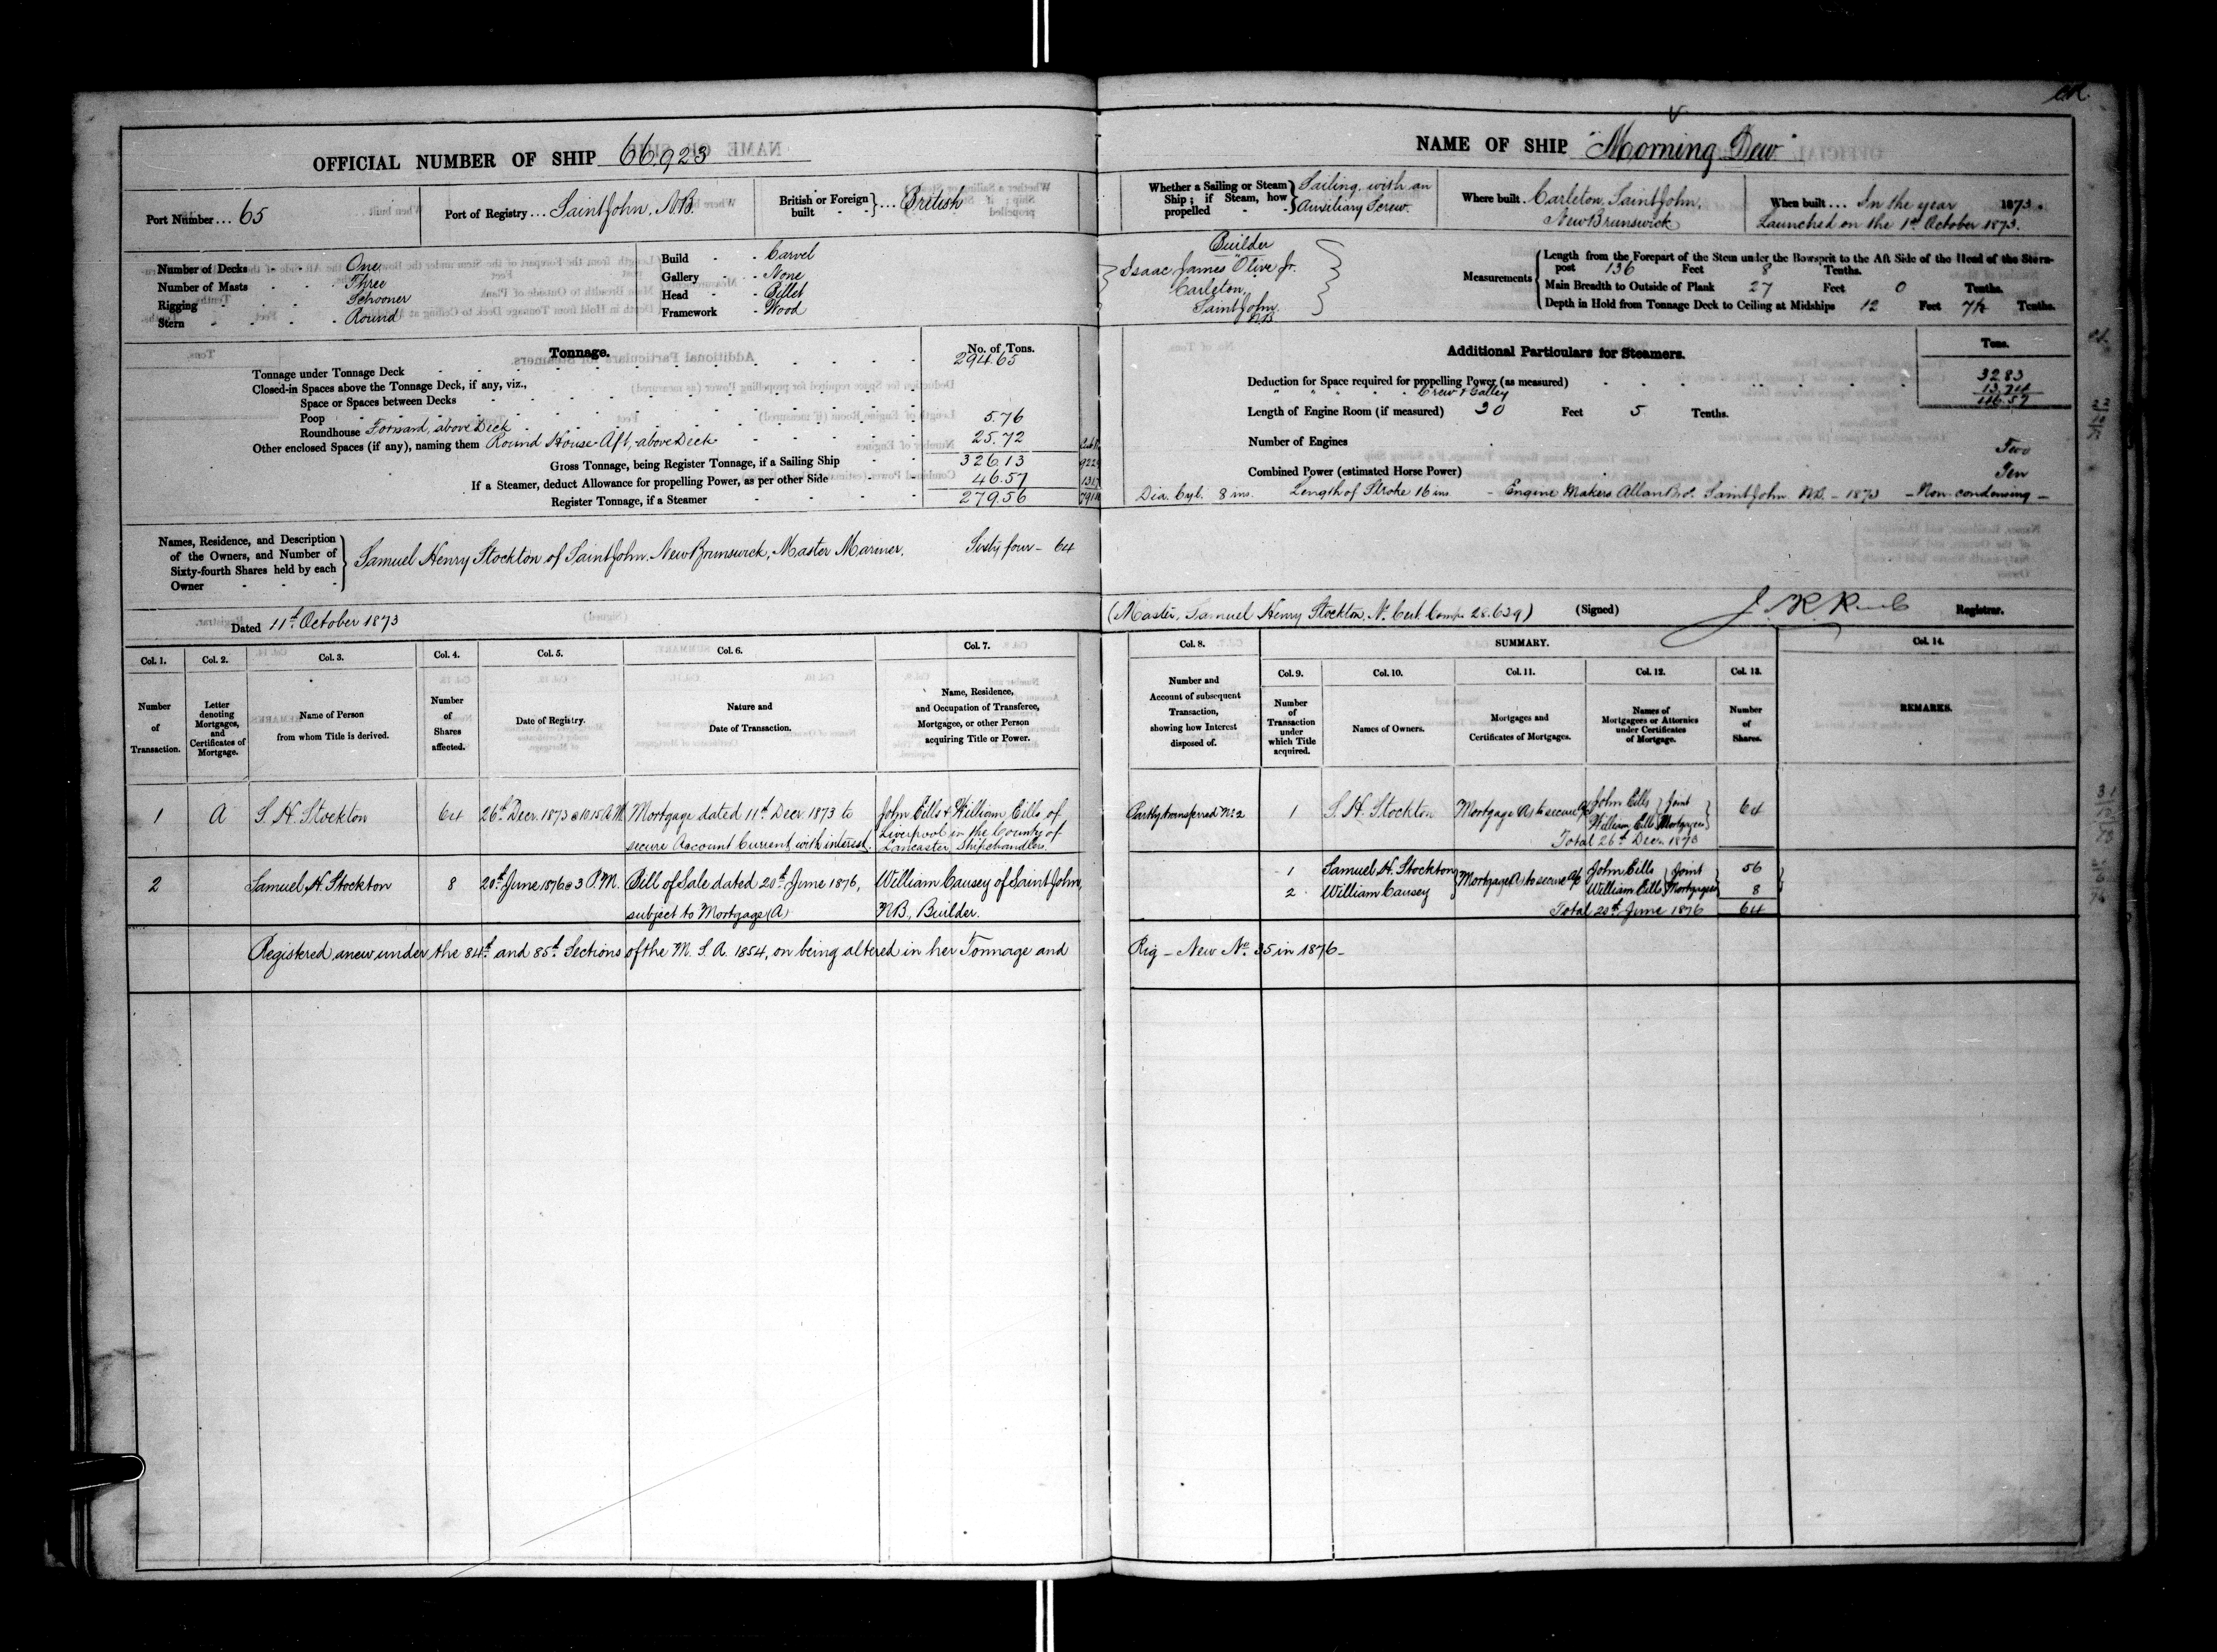 OFFICIAL NUMBER OF SHIP 66.923
Port Number ... 65
Port of Registry ... Saint John, N.B.
British or Foreign built } ... British
Number of Decks One
Number of Masts Three
Rigging Schooner
Stern Round
Build Carvel
Gallery None
Head Billet
Framework Wood
Tonnage.
No. of Tons.
Tonnage under Tonnage Deck 294.65
Closed-in Spaces above the Tonnage Deck, if any, viz.,
Space or Spaces between Decks
Poop
Roundhouse Forward, above Deck 5.76
Other enclosed Spaces (if any), naming them Round House Aft, above Deck 25.72
Gross Tonnage, being Register Tonnage, if a Sailing Ship 326.13
If a Steamer, deduct Allowance for propelling Power, as per other Side 46.57
Register Tonnage, if a Steamer 279.56
Names, Residence, and Description
of the Owners, and Number of
Sixty-fourth Shares held by each
Owner
Samuel Henry Stockton of Saint John, New Brunswick, Master Mariner. Sixty four - 64
Dated 11th October 1873
NAME OF SHIP "Morning Dew"
Whether a Sailing or Steam Ship; if Steam, how propelled } Sailing, with an
Auxiliary Screw.
Where built. Carleton, Saint John,
New Brunswick
When built ... In the year 1873.
Launched on the 1st October 1873.
Builder
Isaac James Olive Jr.
Carleton,
Saint John,
N.B.
Measurements
Length from the Forepart of the Stem under the Bowsprit to the Aft Side of the Head of the Stern-
post 136 Feet 8 Tenths.
Main Breadth to Outside of Plank 27 Feet 0 Tenths.
Depth in Hold from Tonnage Deck to Ceiling at Midships 12 Feet 7½ Tenths.
Additional Particulars for Steamers.
Tons.
Deduction for Space required for propelling Power (as measured) 32.83
" " " " Crew & Galley 13.74
46.57
Length of Engine Room (if measured) 30 Feet 5 Tenths.
Number of Engines Two
Combined Power (estimated Horse Power) Ten
Dia. Cyl. 8 ins. Length of Stroke 16 ins. - Engine Makers Allan Bros. Saint John N.B. - 1873 - Non-condensing -
(Master, Samuel Henry Stockton, No. Cert. Comp. 28.629) (Signed) Registrar.
Col. 1. Number of Transaction.
Col. 2. Letter denoting Mortgages, and Certificates of Mortgage.
Col. 3. Name of Person from whom Title is derived.
Col. 4. Number of Shares affected.
Col. 5. Date of Registry.
Col. 6. Nature and Date of Transaction.
Col. 7. Name, Residence, and Occupation of Transferee, Mortgagee, or other Person acquiring Title or Power.
Col. 8. Number and Account of subsequent Transaction, showing how Interest disposed of.
SUMMARY.
Col. 9. Number of Transaction under which Title acquired.
Col. 10. Names of Owners.
Col. 11. Mortgages and Certificates of Mortgages.
Col. 12. Names of Mortgagees or Attornies under Certificates of Mortgage.
Col. 13. Number of Shares.
Col. 14. REMARKS.
1 A S. H. Stockton 64 26th Decr. 1873 @ 10.15 A.M. Mortgage dated 11th Decr. 1873 to
secure Account Current, with interest.
John Eills & William Eills, of
Liverpool in the County of
Lancaster, Shipchandlers.
Partly transferred No. 2 1 S. H. Stockton Mortgage (A) to secure A/c John Eills } Joint 64
William Eills } Mortgagees
Total 26th Decr. 1873
2 Samuel H. Stockton 8 20th June 1876 @ 3 P.M. Bill of Sale dated 20th June 1876,
subject to Mortgage (A)
William Causey of Saint John,
N.B., Builder.
1 Samuel H. Stockton } Mortgage (A) to secure A/c John Eills } Joint 56
2 William Causey William Eills } Mortgagees 8
Total 20th June 1876 64
Registered anew under the 84th and 85th Sections of the M. S. A. 1854, on being altered in her Tonnage and Rig - New No. 35 in 1876 -